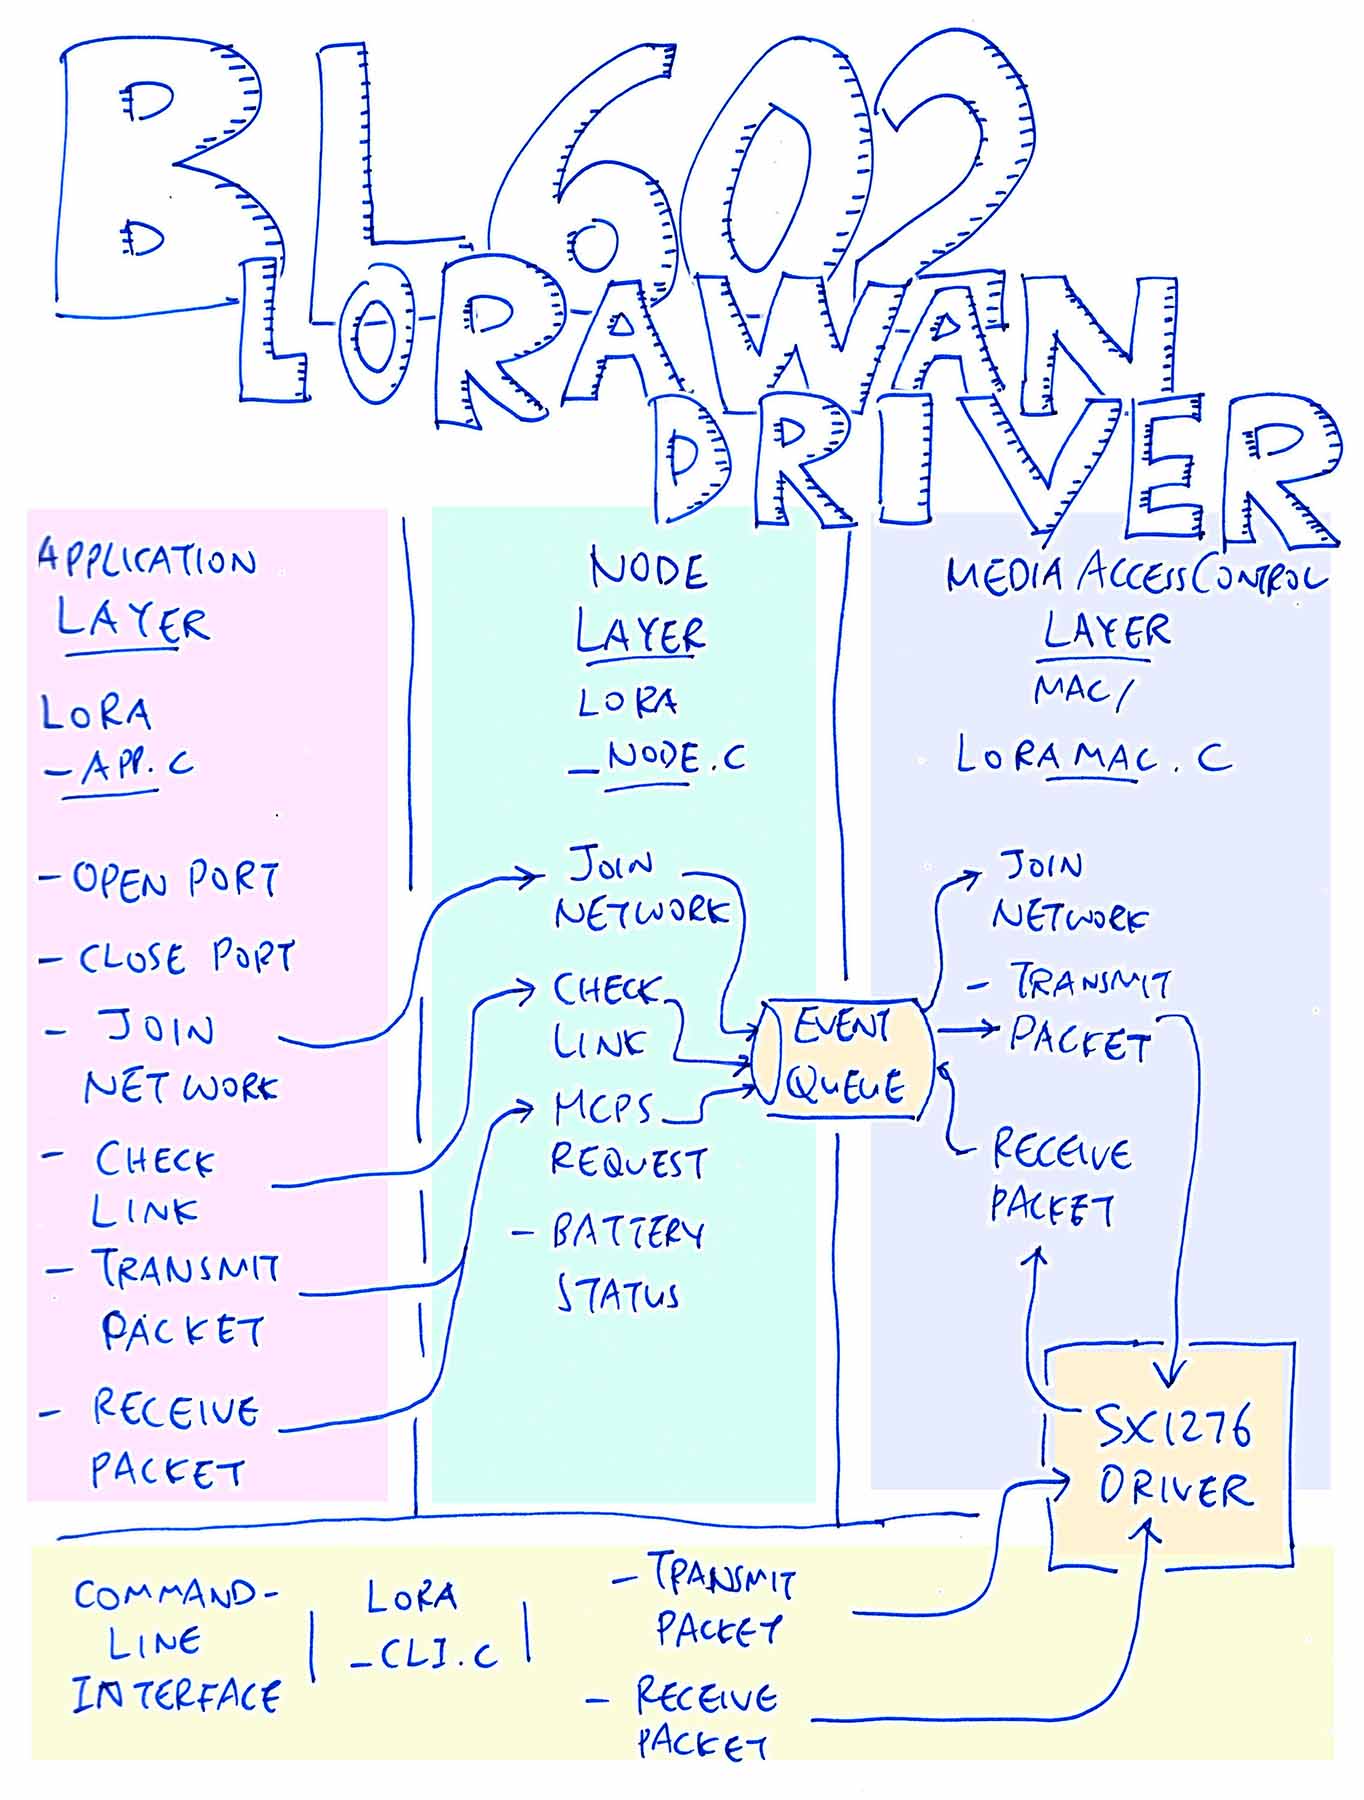 BL602
LORAWAN
DRIVER
APPLICATION
LAYER
LORA
_APP.C
- OPEN PORT
- CLOSE PORT
- JOIN
NETWORK
- CHECK
LINK
- TRANSMIT
PACKET
- RECEIVE
PACKET
NODE
LAYER
LORA
_NODE.C
JOIN
NETWORK
CHECK
LINK
MCPS
REQUEST
- BATTERY
STATUS
EVENT
QUEUE
MEDIA ACCESS CONTROL
LAYER
MAC/
LORAMAC.C
JOIN
NETWORK
- TRANSMIT
PACKET
RECEIVE
PACKET
SX1276
DRIVER
COMMAND-
LINE
INTERFACE
LORA
_CLI.C
- TRANSMIT
PACKET
- RECEIVE
PACKET